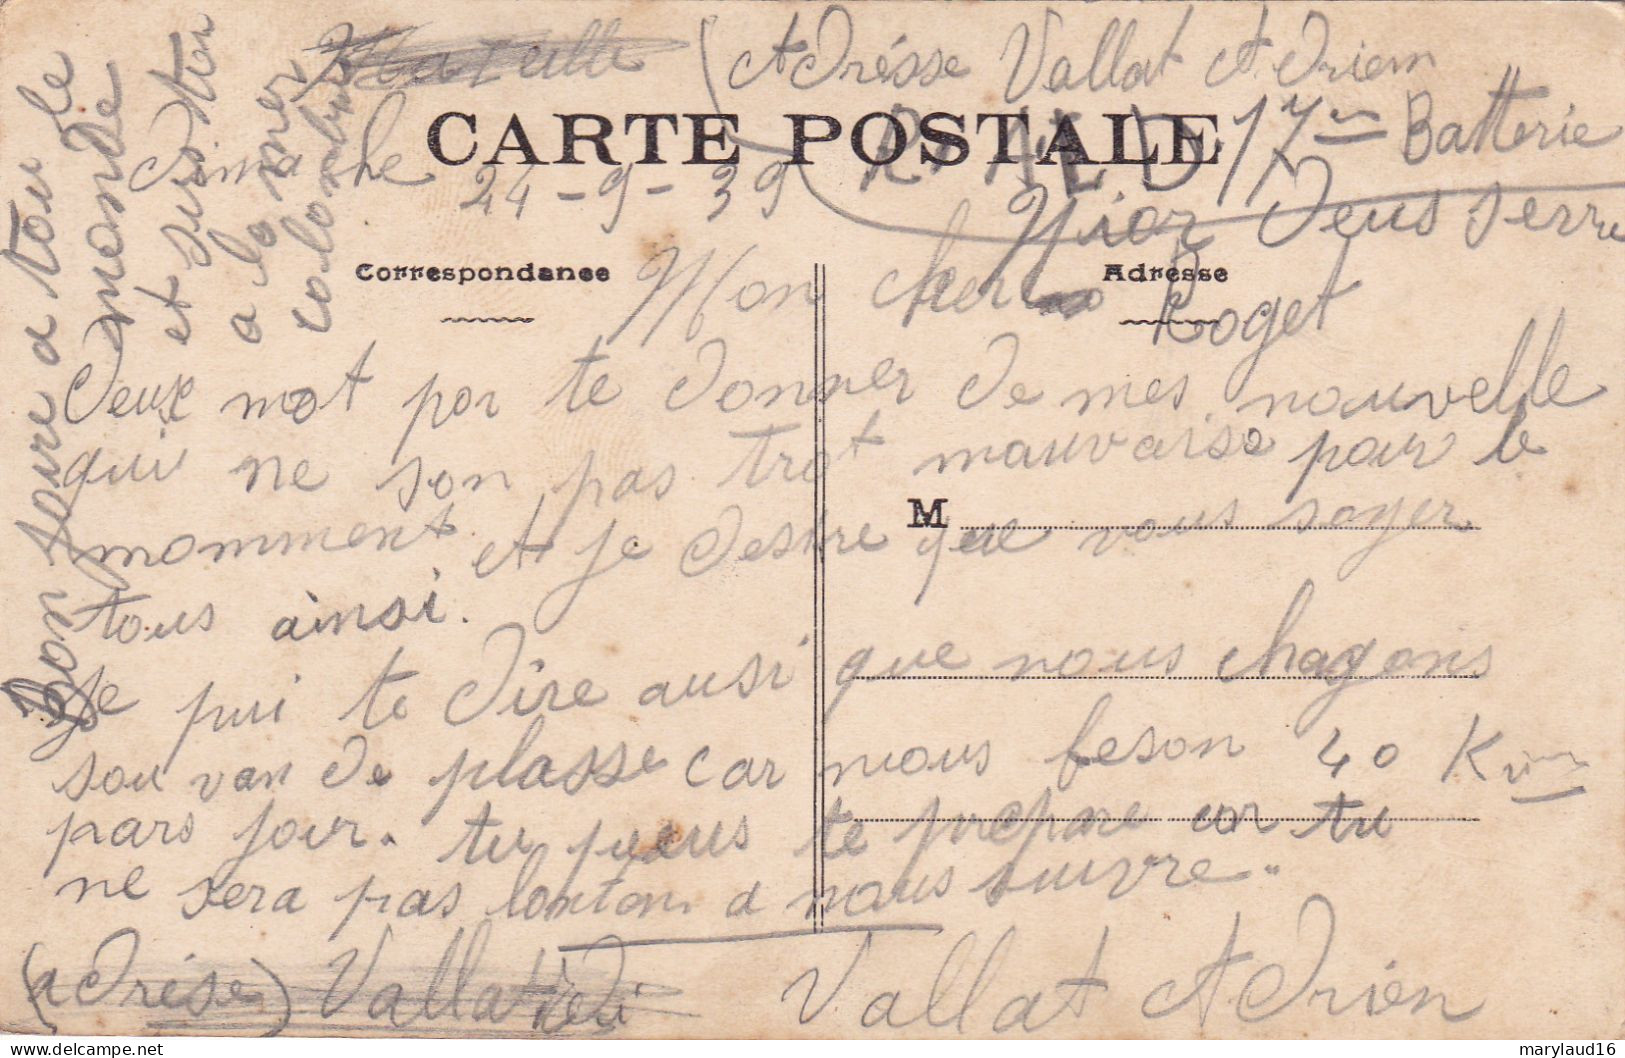 Adrésse Vallat Adrien
CARTE POSTALE
17 Batterie
Dimanche 24-9-39
Nior Deus Serre
Correspondance
Adresse
Mon cher
Roget
Deux mot por te donner de mes nouvelle
qui ne son pas trot mauvaise pour le
momment et je desire que vous soyer
M
tous ainsi.
Je pui te dire ausi que nous chagons
souvan de plasse car nous feson 40 Km
pars jour. tu peus te prepare car tu
ne sera pas lontem a nous suivre..
(adrése) Vallat
Vallat Adrien
Bon soire a tou le
monde
et surtou
a
marylaud16